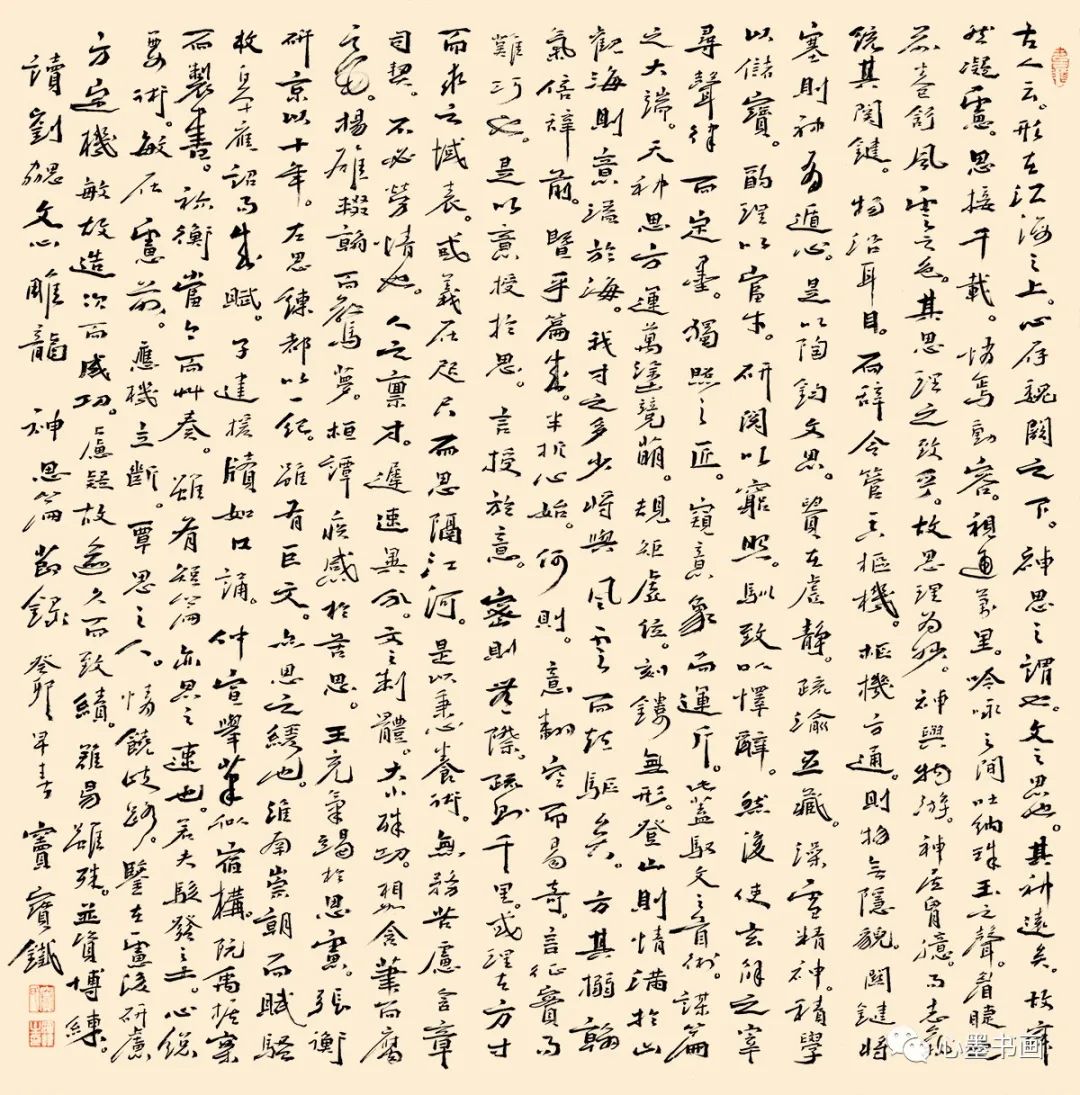 古人云。形在江海之上。心存魏闕之下。神思之謂也。文之思也。其神遠矣。故寂
然凝慮。思接千載。悄焉動容。視通萬里。吟咏之間吐納珠玉之聲。眉睫之
前卷舒風雲之色。其思理之致乎。故思理為妙。神與物游。神居胸臆。而志氣
統其関鍵。物沿耳目。而辭令管其樞機。樞機方通。則物無隱貌。関鍵將
塞則神有遁心。是以陶鈞文思。貴在虛静。疏瀹五藏。澡雪精神。積學
以儲寶。酌理以富才。研閱以窮照。馴致以懌辭。然後使玄解之宰
尋聲律而定墨。獨照之匠。窺意象而運斤。此蓋馭文之首術。謀篇
之大端。夫神思方運萬塗競萌。規矩虛位。刻鏤無形。登山則情滿於山
觀海則意溢於海。我才之多少將與風雲而並驅矣。方其搦翰
氣倍辭前。暨乎篇成。半折心始。何則。意翻空而易奇。言征實而
難巧也。是以意授於思。言授於意。密則無際。疏則千里。或理在方寸
而求之域表。或義在咫尺而思隔江河。是以秉心養術。無務苦慮含章
司契。不必勞情也。人之禀才。遲速異分。文之制體。大小殊功。相如含筆而腐
毫。揚雄輟翰而驚夢。桓譚疾感於苦思。王充氣竭於思慮。張衡
研京以十年。左思練都以一紀。雖有巨文。亦思之緩也。淮南崇朝而賦騷
枚皋應詔而成賦。子建援牘如口誦。仲宣舉筆似宿構。阮禹據案
而製書。祢衡當食而艸奏。雖有短篇亦思之速也。若夫駿發之士。心總
要術。敏在慮前。應機立斷。覃思之人。情饒歧路。鑒在慮後研慮
方定機敏故造次而成功。慮疑故愈久而致績。難易雖殊。並資博練。
讀劉勰文心雕龍 神思篇 節錄 癸卯早春 竇寶鐵
心墨书画